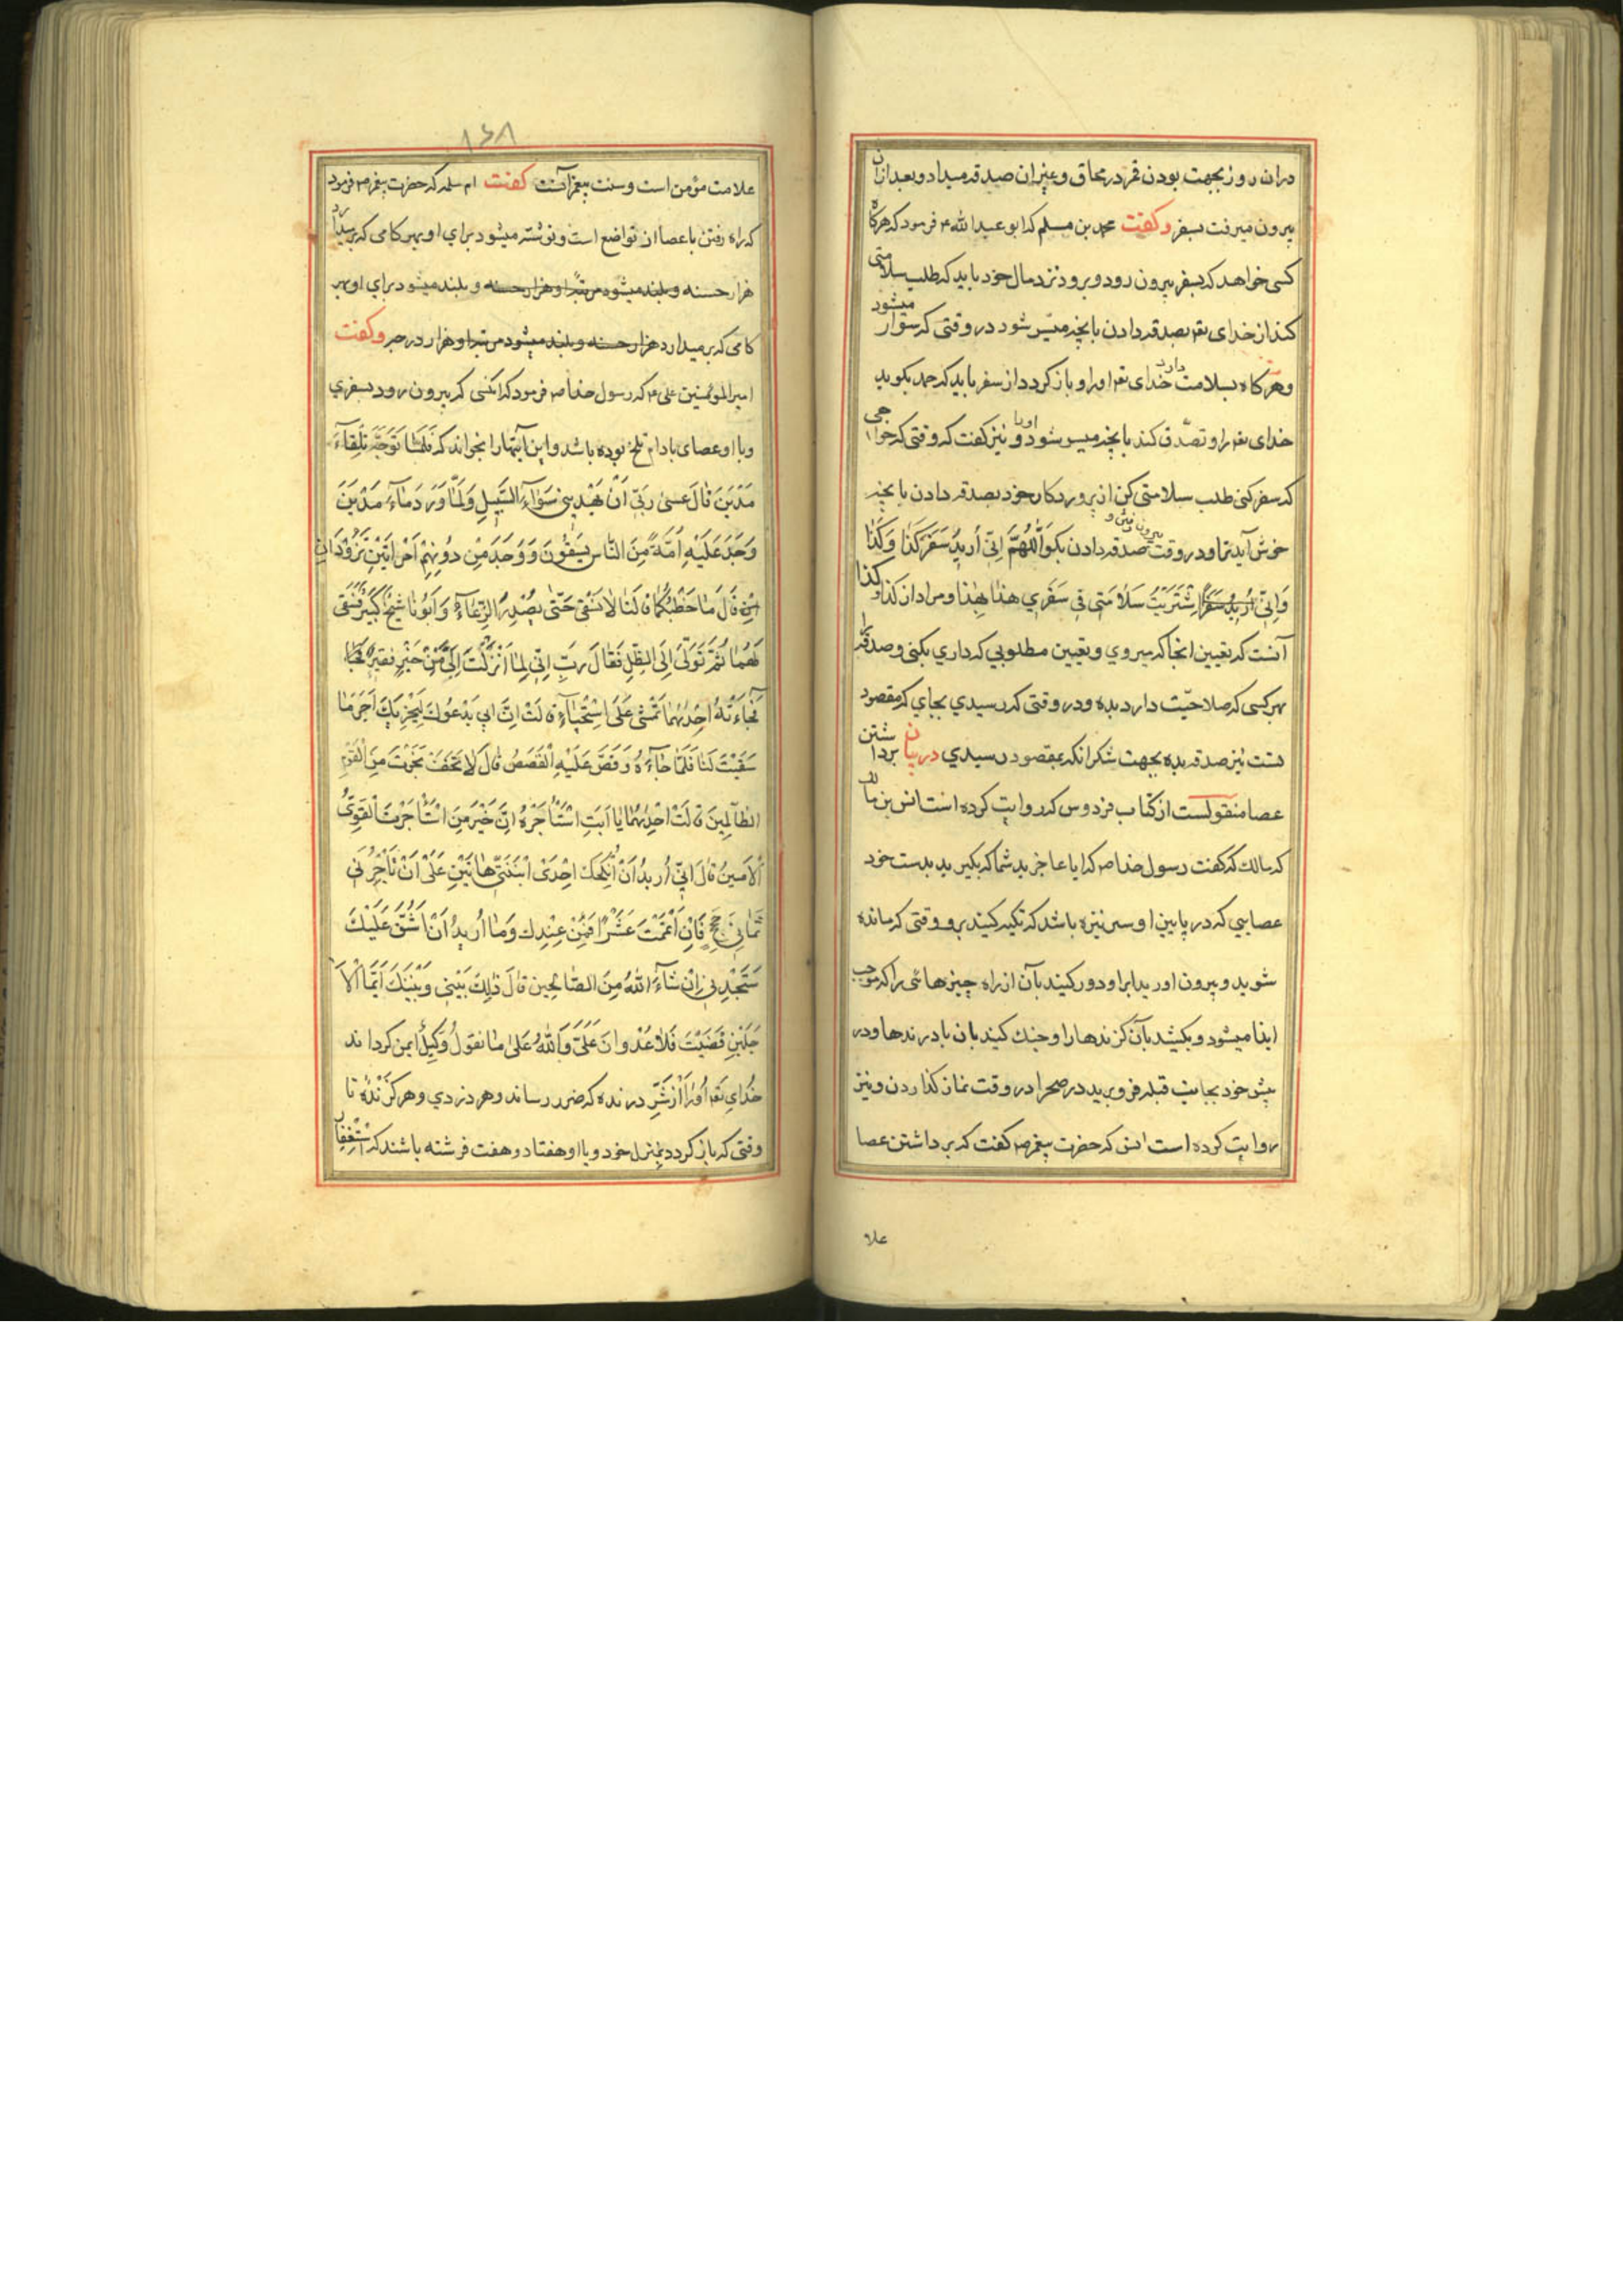 در ان روز بجهت بودن قمر در محاق و غیر ان صدقه میداد و بعد ازان
بیرون میرفت بسفر وکفت محمد بن مسلم که ابو عبدالله ع فرمود که هرکاه
کسی خواهد که بسفر بیرون رود و برود نزد مال خود باید که طلب سلامتی
کند از خدای تع بصدقه دادن بانچه میسر شود در وقتی که سوار میشود
وهرکاه بسلامت دارد خدای تع او را و باز کردد از سفر باید که حمد بکوید
خدای تع را و تصدّق کند بانچه میسر شود او را و نیز کفت که وقتی که خواهی
که سفر کنی طلب سلامتی کن از پروردکار خود بصدقه دادن بانچه
خوش آید ترا و در وقت بیرون رفتن و صدقه دادن بکو اَللّهُمَّ اِنّی اُریدُ سَفَرَ کَذٰا وَکَذٰا
وَاِنّی اشْتَرَیْتُ سَلٰامَتی فی سَفَری هذا بِهٰذا و مراد از کذا وکذا
آنست که تعیین انجا که میروی و تعیین مطلوبی که داری بکنی و صدقه
بهر کسی که صلاحیّت دارد بده و در وقتی که رسیدی بجای که مقصود
تست نیز صدقه بده بجهت شکرانکه بمقصود رسیدی در بیان برداشتن
عصا منقولست از کتاب فردوس که روایت کرده است انس بن مالک
که مالک که کفت رسول خدا ص که ایا عاجزید شما که بکیرید بدست خود
عصایی که در پایین او سر نیزه باشد که تکیه کنید برو وقتی که مانده
شوید و بیرون اورید ابر او دور کنید بآن از راه چیزهائی را که موجب
ایذا میشود و بکشید بآن کزندها را و جنک کنید بان با درندها و در
پیش خود بجانب قبله فرو برید در صحرا در وقت نماز کذاردن و نیز
روایت کرده است انس که حضرت پیغمر ص کفت که برداشتن عصا
علا
علامت مؤمن است وسنت پیغمرانست کفت ام سلمه که حضرت پیغمر ص فرمود
که راه رفتن با عصا از تواضع است و نوشته میشود برای او بهر کامی که برمیدارد
هزار حسنه و بلند میشود برای او بهر
کامی که برمیدارد هزار درجه وکفت
امیرالمؤمنین علی ع که رسول خدا ص فرمود که انکسی که بیرون رود بسفری
و با او عصای بادام تلخ بوده باشد و این آیتها را بخواند که فَلَمّٰا تَوَجَّهَ تِلْقٰآءَ
مَدْیَنَ قٰالَ عَسیٰ رَبّی اَنْ یَهْدِیَنی سَوٰآءَ السَّبیلِ وَلَمّٰا وَرَدَ مٰآءَ مَدْیَنَ
وَجَدَ عَلَیْهِ اُمَّةً مِنَ النّٰاسِ یَسْقُونَ وَ وَجَدَ مِنْ دُونِهِمْ اِمْرَاَتَیْنِ تَذُودٰانِ
قٰالَ مٰا خَطْبُکُمٰا قٰالَتٰا لاٰ نَسْقی حَتّیٰ یُصْدِرَ الرِّعٰآءُ وَ اَبُونٰا شَیْخٌ کَبیرٌ فَسَقیٰ
لَهُمٰا ثُمَّ تَوَلّیٰ اِلَی الظِّلِّ فَقٰالَ رَبِّ اِنّی لِمٰا اَنْزَلْتَ اِلَیَّ مِنْ خَیْرٍ فَقیرٌ
فَجٰاءَتْهُ اِحْدٰیهُمٰا تَمْشی عَلَی اسْتِحْیٰآءٍ قٰالَتْ اِنَّ اَبی یَدْعُوکَ لِیَجْزِیَکَ اَجْرَ مٰا
سَقَیْتَ لَنٰا فَلَمّٰا جٰآءَهُ وَ قَصَّ عَلَیْهِ الْقَصَصَ قٰالَ لاٰ تَخَفْ نَجَوْتَ مِنَ الْقَوْمِ
الظّٰالِمینَ قٰالَتْ اِحْدٰیهُمٰا یٰا اَبَتِ اسْتَأْجِرْهُ اِنَّ خَیْرَ مَنِ اسْتَأْجَرْتَ الْقَوِیُّ
الاَمینُ قٰالَ اِنّی اُریدُ اَنْ اُنْکِحَکَ اِحْدَی ابْنَتَیَّ هٰاتَیْنِ عَلیٰ اَنْ تَأْجُرَنی
ثَمٰانِیَ حِجَجٍ فَاِنْ اَتْمَمْتَ عَشْرًا فَمِنْ عِنْدِکَ وَمٰا اُریدُ اَنْ اَشُقَّ عَلَیْکَ
سَتَجِدُنی اِنْ شٰآءَ اللّٰهُ مِنَ الصّٰالِحین قٰالَ ذٰلِکَ بَیْنی وَ بَیْنَکَ اَیَّمَا الْاَ
جَلَیْنِ قَضَیْتُ فَلاٰ عُدْوانَ عَلَیَّ وَاللّٰهُ عَلیٰ مٰا نَقُولُ وَکیلٌ ایمن کرداند
خُدای تَع اُو رٰا اَزْ شَرِّ درنده که ضرر رساند و هر دزدی و هر کزنده تا
وقتی که باز کردد بمنزل خود و با او هفتاد و هفت فرشته باشند که استغفا